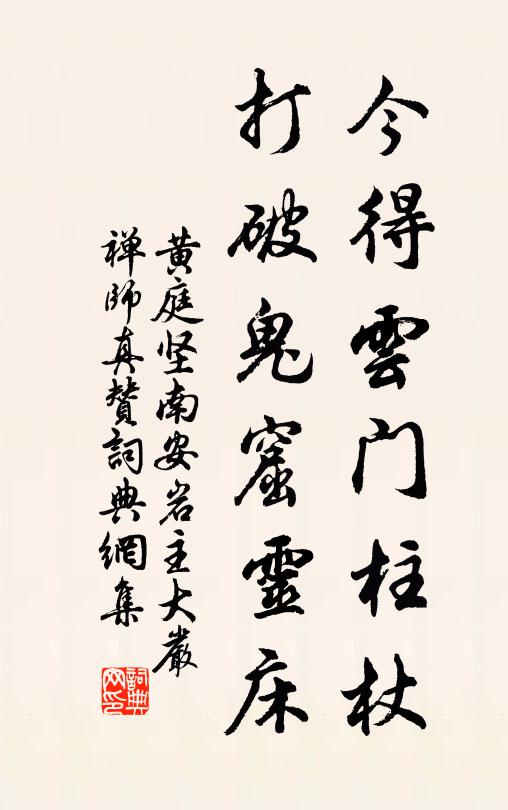 今得雲门柱杖
打破鬼窟靈床
黄庭坚南安岩主大嚴
禅師真赞詞典網集
詞典网印